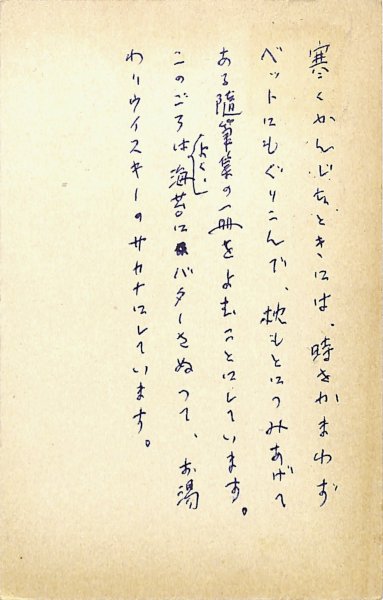 寒くかんじたときには、時をかまわず
ベットにもぐりこんで、枕もとにつみあげて
ある随筆集の一冊をよむことにしています。
このごろはよく、海苔にバターをぬって、お湯
わりウイスキーのサカナにしています。